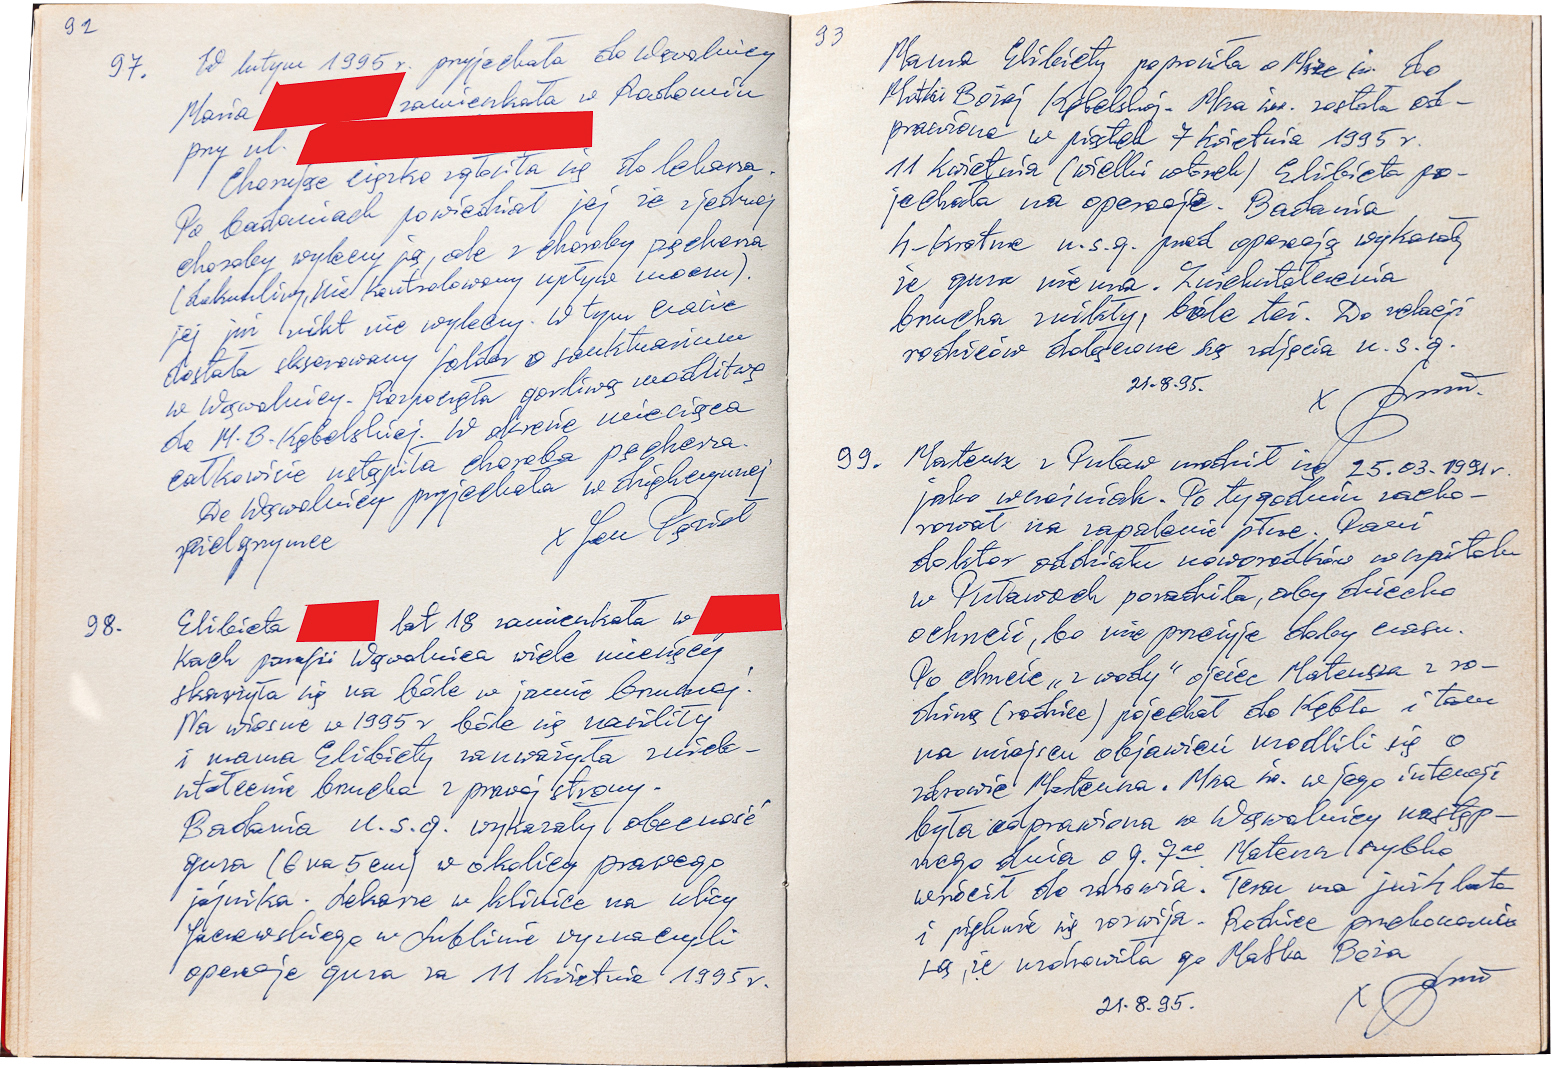 92
97. W lutym 1995 r. przyjechała do Wąwolnicy
Maria zamieszkała w Radomiu
przy ul.
Chorując ciężko zgłosiła się do lekarza.
Po badaniach powiedział jej że z jednej
choroby wyleczy ją, ale z choroby pęcherza
(dokuczliwy, nie kontrolowany upływ moczu).
jej już nikt nie wyleczy. W tym czasie
dostała skserowany folder o sanktuarium
w Wąwolnicy. Rozpoczęła gorliwą modlitwę
do M.B. Kębelskiej. W okresie miesiąca
całkowicie ustąpiła choroba pęcherza.
Do Wąwolnicy przyjechała w dziękczynnej
pielgrzymce
x Jan Pęzioł
98. Elżbieta lat 18 zamieszkała w
kach parafii Wąwolnica wiele miesięcy
skarżyła się na bóle w jamie brzusznej.
Na wiosnę w 1995 r bóle się nasiliły
i mama Elżbiety zauważyła znieks-
ztałcenie brzucha z prawej strony.
Badania u.s.g. wykazały obecność
guza (6 na 5 cm) w okolicy prawego
jajnika. Lekarze w klinice na ulicy
Jaczewskiego w Lublinie wyznaczyli
operację guza na 11 kwietnia 1995 r.
93
Mama Elżbiety poprosiła o Mszę św. do
Matki Bożej Kębelskiej. Msza św. została od-
prawiona w piątek 7 kwietnia 1995 r.
11 kwietnia (wielki wtorek) Elżbieta po-
jechała na operację. Badania
4-krotne u.s.g. przed operacją wykazały
że guza nie ma. Zniekształcenia
brzucha znikły, bóle też. Do relacji
rodziców dołączone są zdjęcia u.s.g.
21.8.95.
x
99. Mateusz z Puław urodził się 25.03.1991 r.
jako wcześniak. Po tygodniu zacho-
rował na zapalenie płuc. Pani
doktor oddziału noworodków w szpitalu
w Puławach poradziła, aby dziecko
ochrzcić, bo nie przeżyje doby czasu.
Po chrzcie „z wody" ojciec Mateusza z ro-
dziną (rodzice) pojechał do Kębła i tam
na miejscu objawień modlili się o
zdrowie Mateusza. Msza św. w jego intencji
była odprawiona w Wąwolnicy następ-
nego dnia o g. 7⁰⁰. Mateusz szybko
wrócił do zdrowia. Teraz ma już 4 lata
i pięknie się rozwija. Rodzice przekonania
są, że uzdrowiła go Matka Boża
21.8.95.
x